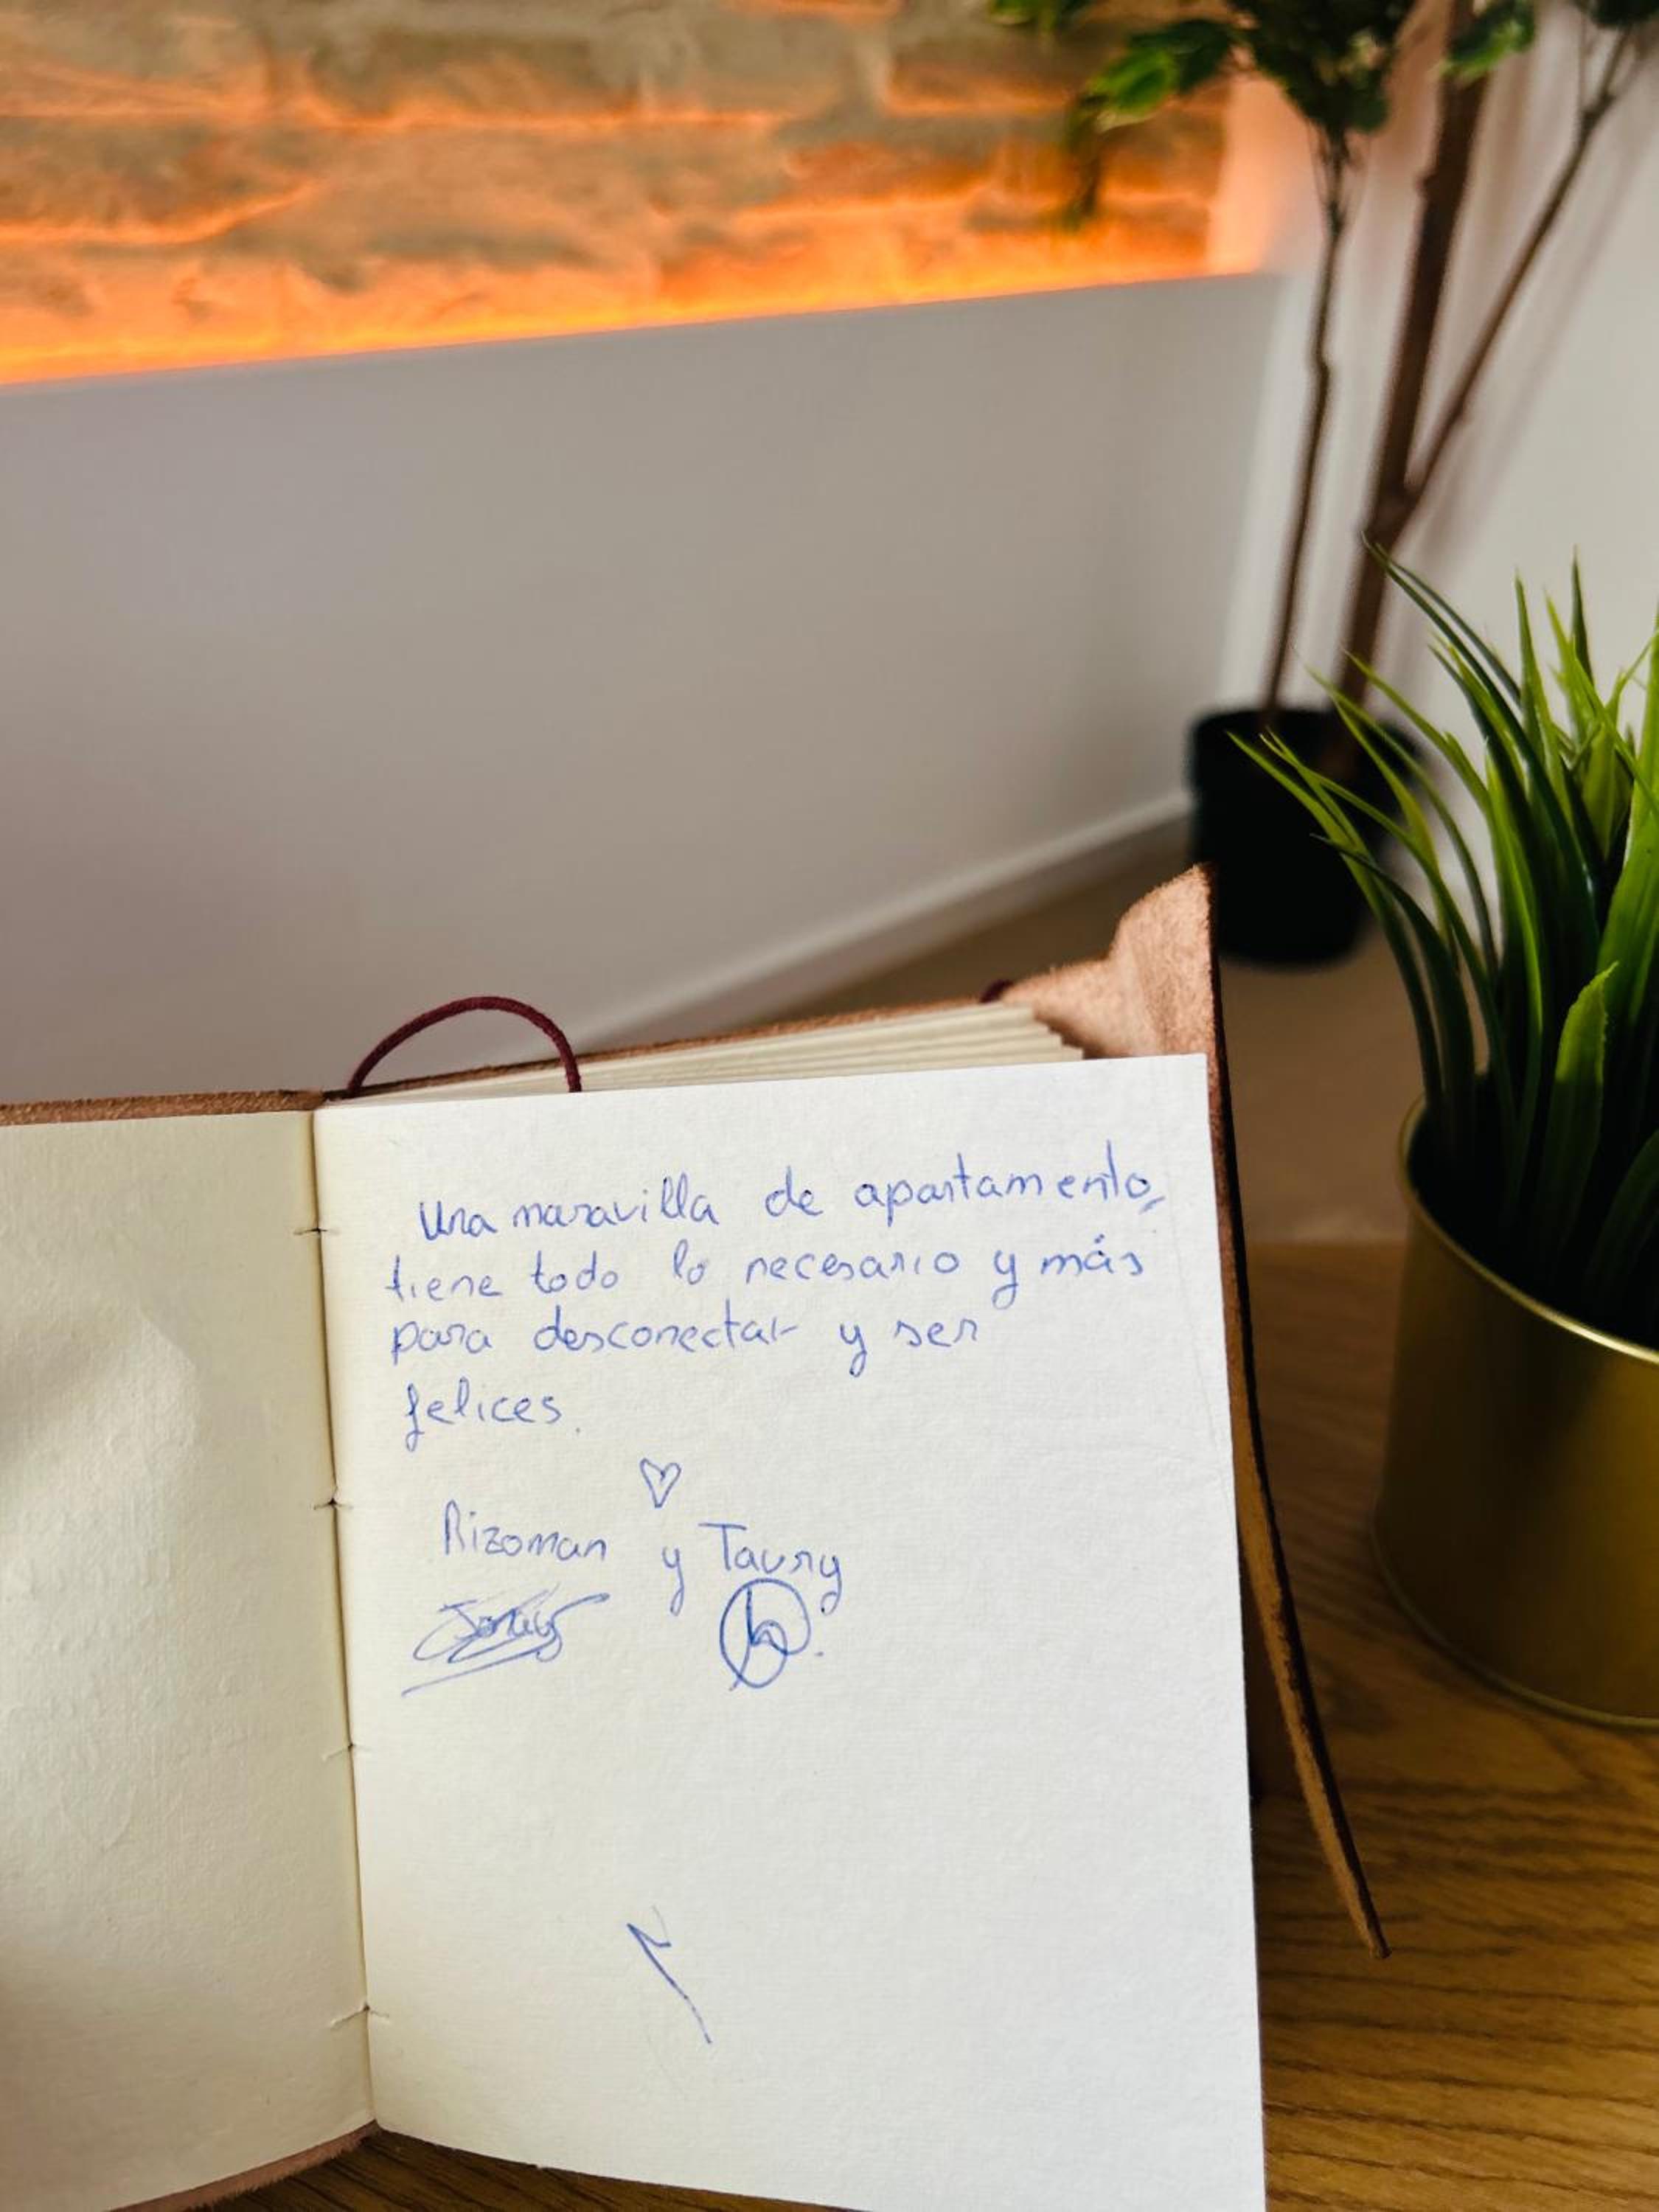 Una maravilla de apartamento,
tiene todo lo necesario y más
para desconectar y ser
felices.
Rizoman y Taury